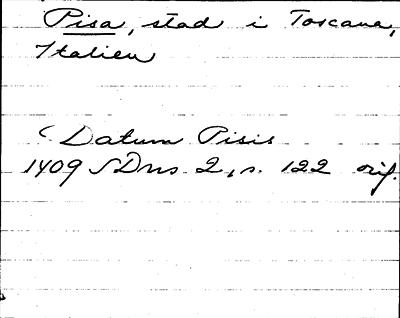 Pisa, stad i Toscana,
Italien
Datum Pisis
1409 SDns 2, s. 122 orig.